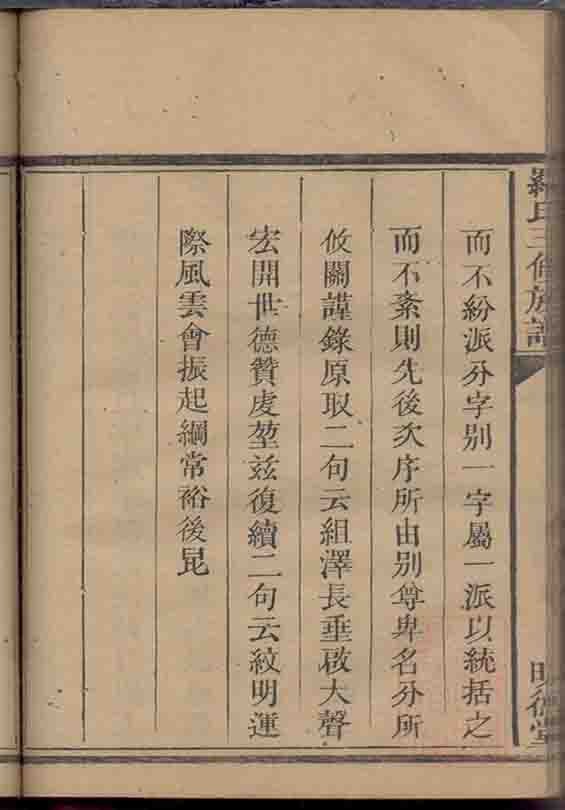 羅氏三修族譜
明德堂
而不紛派分字別一字屬一派以統括之
而不紊則先後次序所由別尊卑名分所
攸關謹錄原取二句云組澤長垂啟大聲
宏開世德贊虔堃玆復續二句云紋明運
際風雲會振起綱常裕後昆